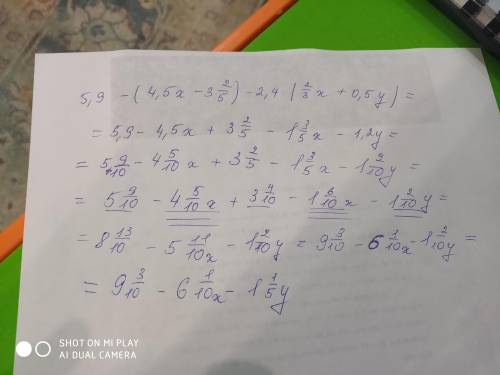 5,9 - (4,5x - 3 2/5) - 2,4 (2/3 x + 0,5y) =
= 5,9 - 4,5x + 3 2/5 - 1 3/5 x - 1,2y =
= 5 9/10 - 4 5/10 x + 3 2/5 - 1 3/5 x - 1 2/10 y =
= 5 9/10 - 4 5/10 x + 3 4/10 - 1 6/10 x - 1 2/10 y =
= 8 13/10 - 5 11/10 x - 1 2/10 y = 9 3/10 - 6 1/10 x - 1 2/10 y =
= 9 3/10 - 6 1/10 x - 1 1/5 y
SHOT ON MI PLAY
AI DUAL CAMERA